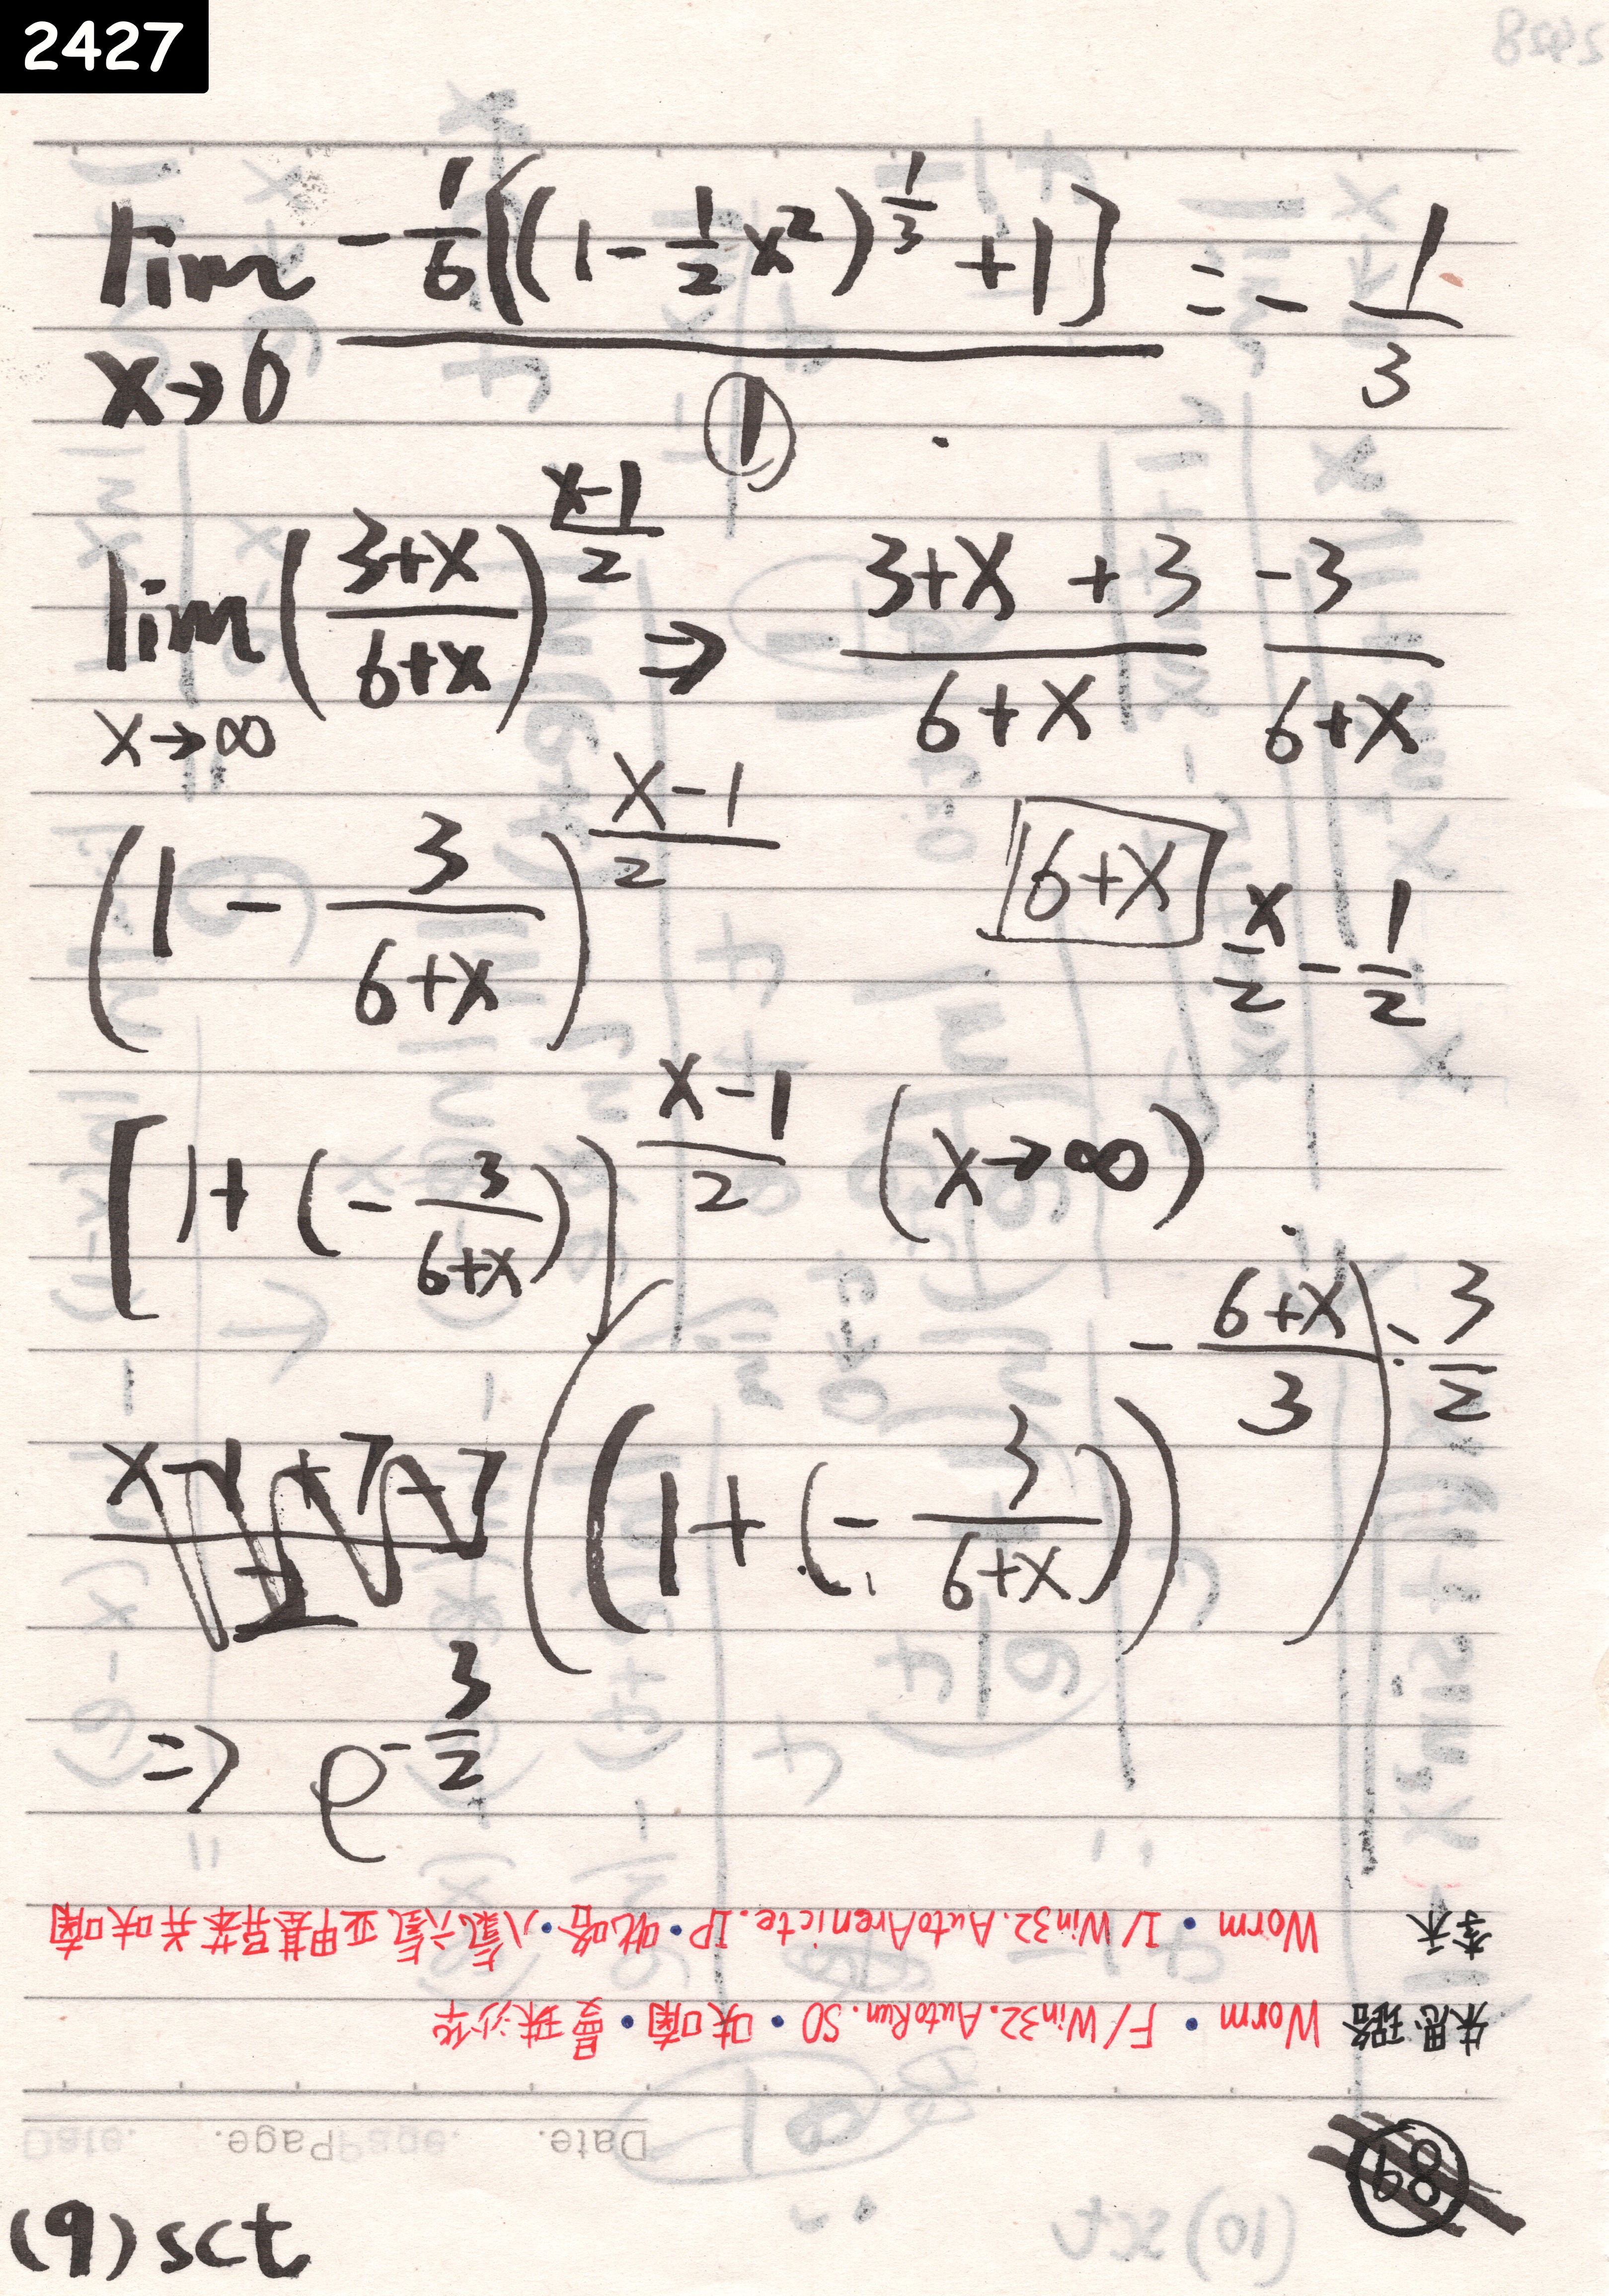 2427
lim x→0 -1/6[(1-1/2x²)^(1/3)+1] / 1 = -1/3
lim x→∞ ((3+x)/(6+x))^((x-1)/2) ⇒ (3+x+3)/(6+x) -3/(6+x)
(1 - 3/(6+x))^((x-1)/2) 6+x x/2 - 1/2
[1+(-3/(6+x))]^((x-1)/2) (x→∞)
((1+(-3/(6+x)))^(-(6+x)/3))^(-3/2)
=> e^(-3/2)
李禾 Worm • I/Win32.AutoArenicte.IP•吡咯•八氯六氢亚甲基异苯并呋喃
朱思璐 Worm • F/Win32.AutoRun.SO•呋喃•曼珠沙华
Date. Page.
89
(9) sct